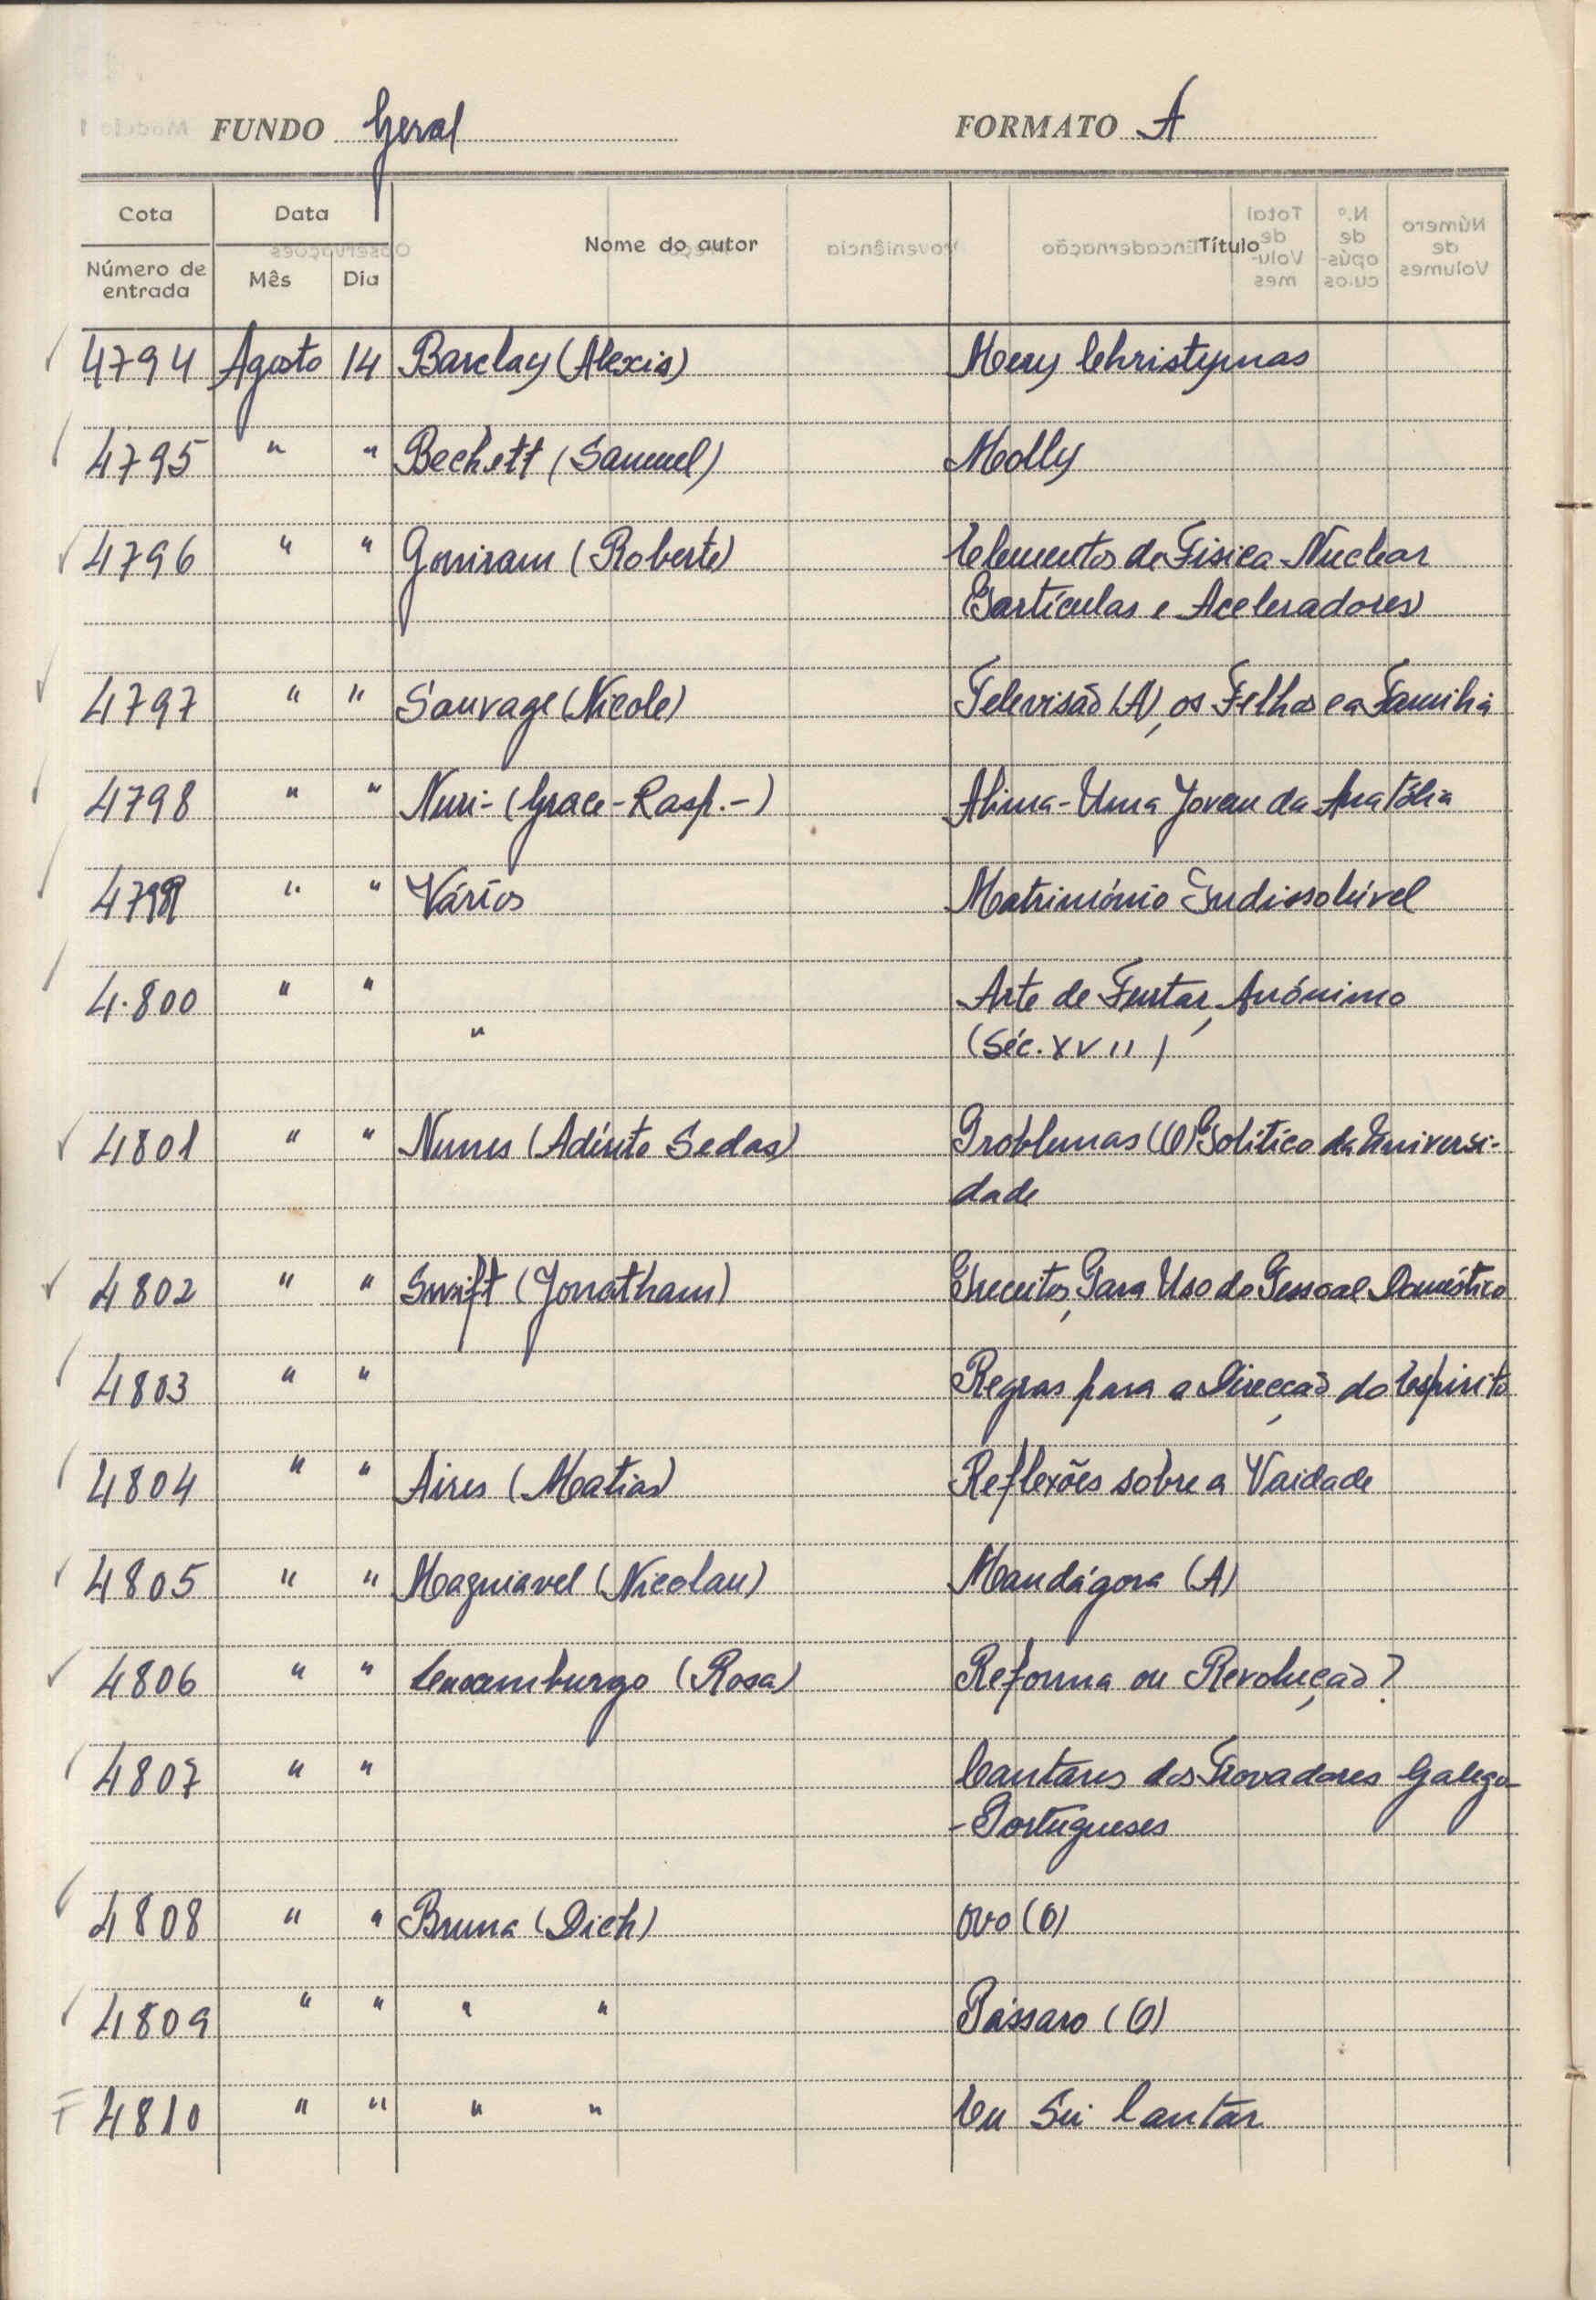 FUNDO Geral FORMATO A
Cota Data Nome do autor Título
Número de entrada Mês Dia
4794 Agosto 14 Barclay (Alexis) Mery Christymas
4795 " " Beckett (Samuel) Molly
4796 " " Gouiram (Roberte) Elementos de Fisica Nuclear
Partículas e Aceleradores
4797 " " Sauvage (Nicole) Televisão (A), os Filhos e a Familia
4798 " " Nuri- (Grace-Rasp.-) Alima-Uma Jovem da Anatólia
4799 " " Vários Matrimónio Indissolúvel
4.800 " " Arte de Furtar, Anónimo
" (Séc. XVII)
4801 " " Nunes (Adérito Sedas) Problemas (O) Politico da Universi-
dade
4802 " " Swift (Jonatham) Preceitos, Para Uso do Pessoal Doméstico
4803 " " Regras para a Direcção do Espirito
4804 " " Aires (Matias) Reflexões sobre a Vaidade
4805 " " Maquiavel (Nicolau) Mandágora (A)
4806 " " Luxamburgo (Rosa) Reforma ou Revolução?
4807 " " Cantares dos Trovadores Galego
-Portugueses
4808 " " Bruna (Dick) Ovo (O)
4809 " " " " Pássaro (O)
4810 " " " " Eu Sei Cantar